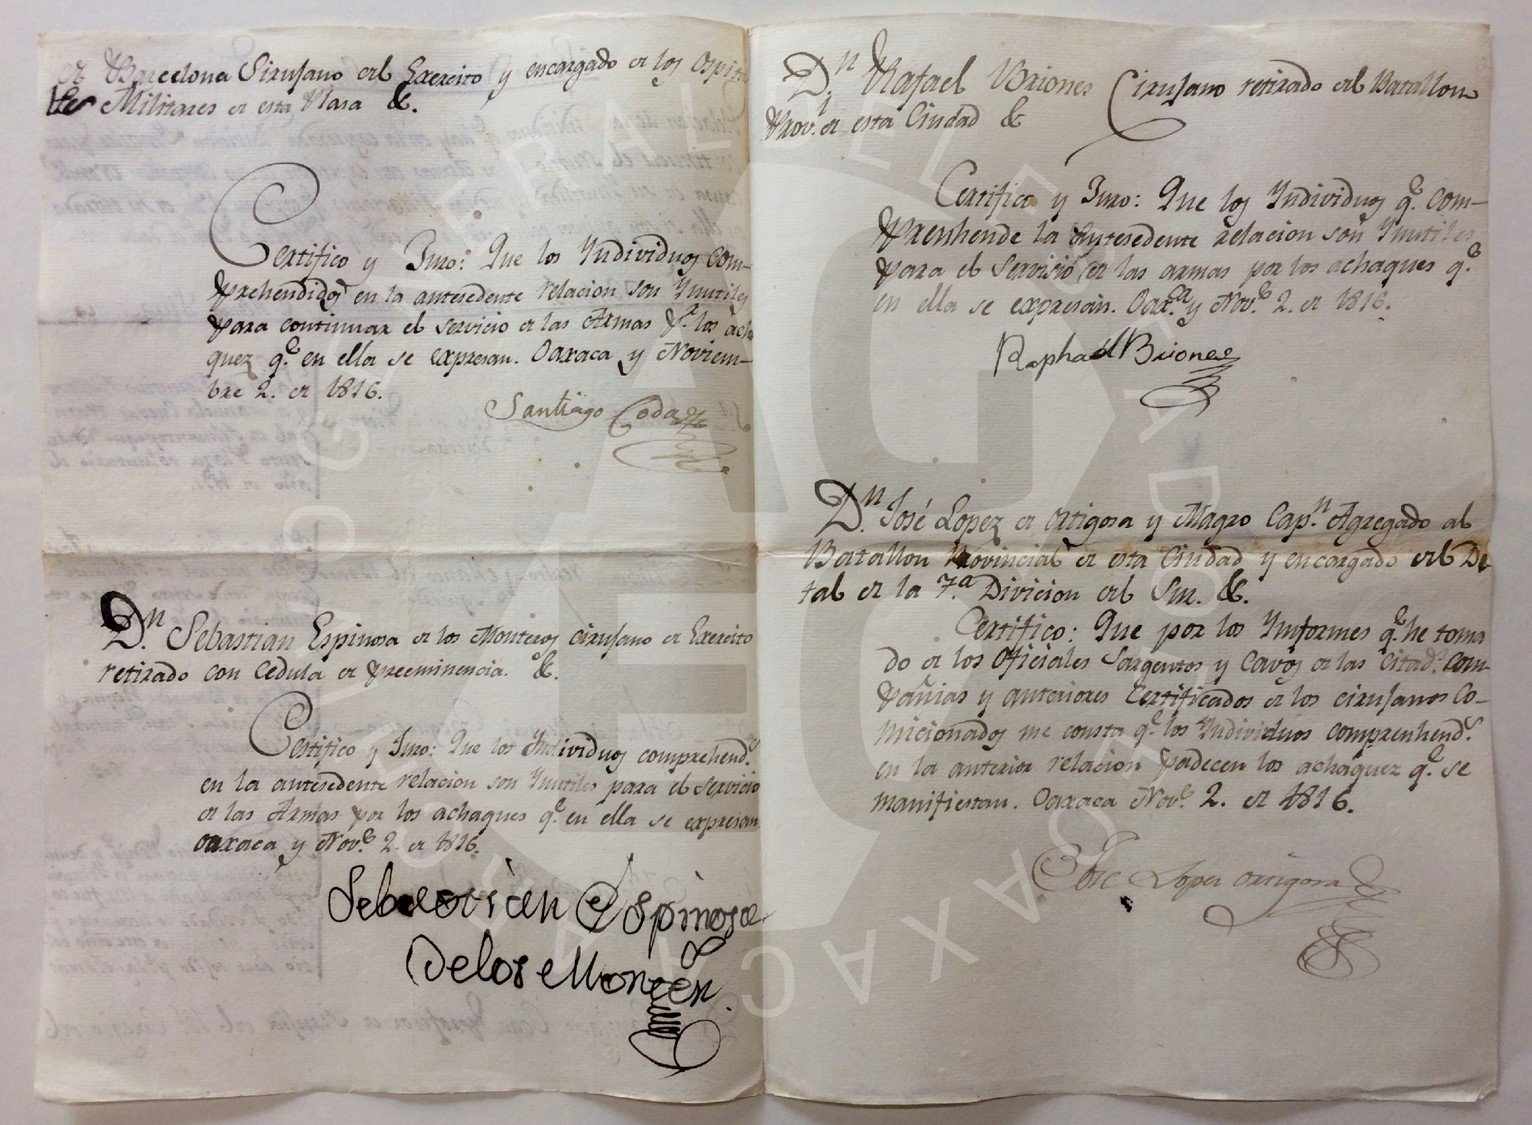 de Barcelona Sirujano del Exercito y encargado de los Ospita
les Militares de esta Plasa &.
Certifico y Juro: Que los Yndividuos com-
prehendidos en la antesedente relacion son Ynutiles
para continuar el servicio de las Armas pr. los acha
quez qe. en ella se expresan. Oaxaca y Noviem-
bre 2. de 1816.
Santiago Codas
Dn. Sebastian Espinosa de los Monteros cirujano de Exercito
retirado con Cedula de preeminencia. &.
Certifico y Juro: Que los Individuos comprehends.
en la antesedente relacion son Ynutiles para el servicio
de las Armas por los achaques qe. en ella se expresan
Oaxaca y Nove. 2. de 1816.
Sebastian Espinosa
De los Monteros
Dn. Rafael Briones Cirujano retirado del Batallon
Provl. de esta Ciudad &
Certifico y Juro: Que los Yndividuos qe. com-
prenhende la Antesedente relacion son Ynutiles
para el servicio de las armas por los achaques qe.
en ella se expresan. Oaxca. y Nove. 2. de 1816.
Raphael Briones
Dn. José Lopez de Ortigosa y Magro Capn. Agregado al
Batallon Provincial de esta Ciudad y encargado del De
tal de la 7.a Division del Sur. &.
Certifico: Que por los Ynformes qe. he toma
do de los Oficiales Sargentos y Cavos de las Citads. Com-
pañias y anteriores Certificados de los cirujanos Co-
micionados me consta qe. los Yndividuos comprenhends.
en la anterior relacion padecen los achaquez qe. se
manifiestan. Oaxaca Nove. 2. de 1816.
José Lopez Ortigosa